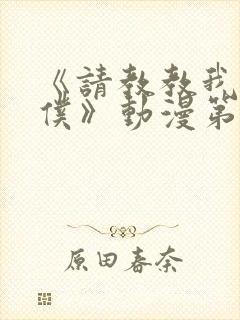 《請教教我
僕》動漫第
原田春奈